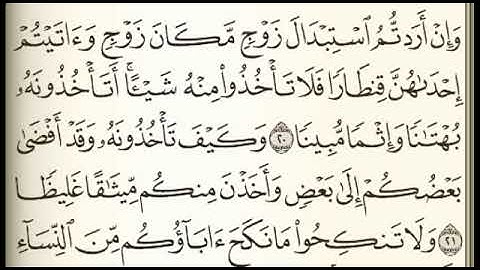 وَإِنْ أَرَدتُّمُ ٱسْتِبْدَالَ زَوْجٍ مَّكَانَ زَوْجٍ وَءَاتَيْتُمْ
إِحْدَىٰهُنَّ قِنطَارًا فَلَا تَأْخُذُوا۟ مِنْهُ شَيْـًٔا ۚ أَتَأْخُذُونَهُۥ
بُهْتَـٰنًا وَإِثْمًا مُّبِينًا ٢٠ وَكَيْفَ تَأْخُذُونَهُۥ وَقَدْ أَفْضَىٰ
بَعْضُكُمْ إِلَىٰ بَعْضٍ وَأَخَذْنَ مِنكُم مِّيثَـٰقًا غَلِيظًا
٢١ وَلَا تَنكِحُوا۟ مَا نَكَحَ ءَابَآؤُكُم مِّنَ ٱلنِّسَآءِ